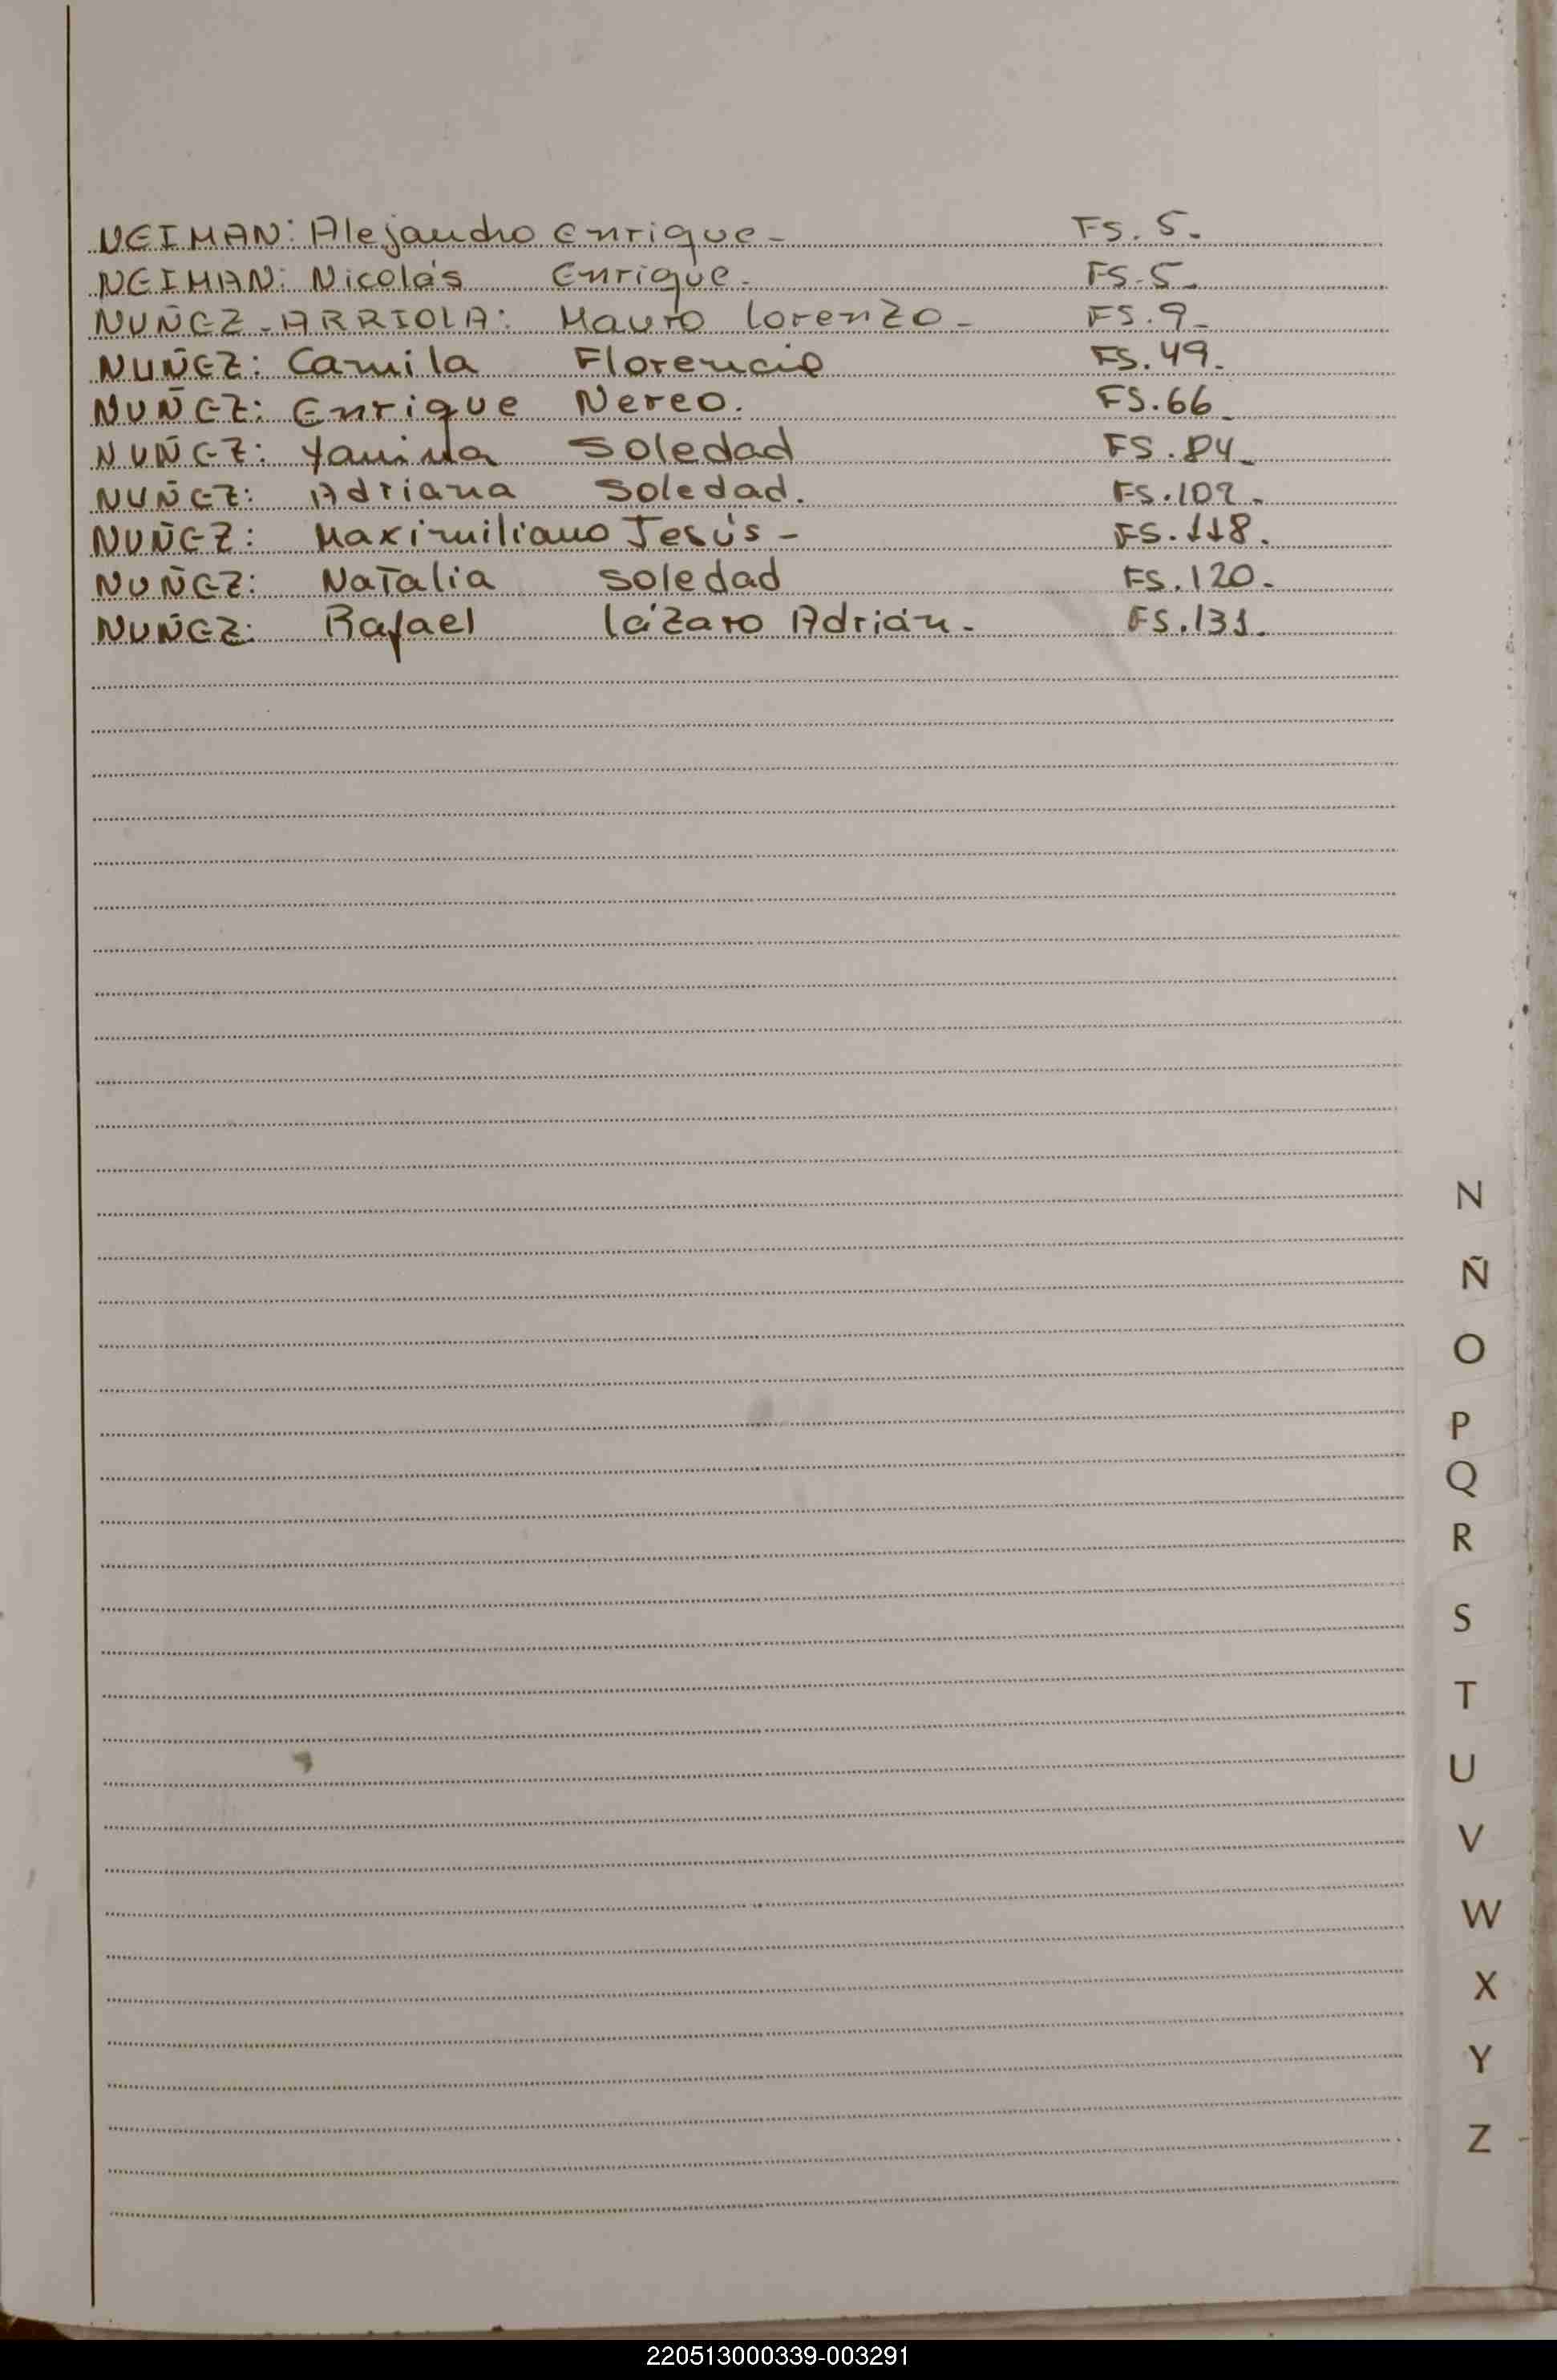 NEIMAN: Alejandro Enrique- FS. 5.
NEIMAN: Nicolás Enrique. FS-5-
NUÑEZ-ARRIOLA: Mauro Lorenzo- FS.9-
NUÑEZ: Camila Florencia FS.49.
NUÑEZ: Enrique Nereo. FS.66-
NUÑEZ: Yanina Soledad FS.84-
NUÑEZ: Adriana Soledad. FS.102-
NUÑEZ: Maximiliano Jesús- FS.118.
NUÑEZ: Natalia Soledad FS.120-
NUÑEZ: Rafael Lázaro Adrián- FS.131.
N
Ñ
O
P
Q
R
S
T
U
V
W
X
Y
Z
220513000339-003291